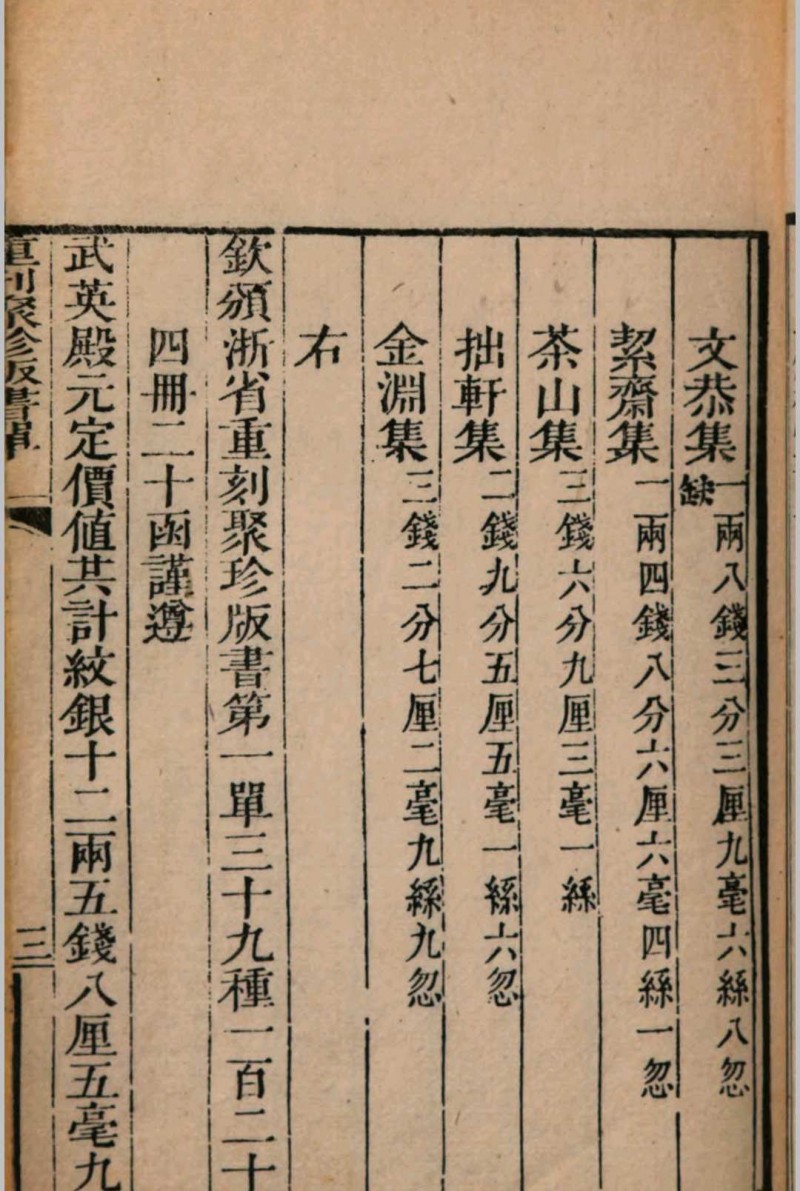 文恭集一兩八錢三分三厘九毫六絲八忽
缺
絜齋集一兩四錢八分六厘六毫四絲一忽
茶山集三錢六分九厘三毫一絲
拙軒集二錢九分五厘五毫一絲六忽
金淵集三錢二分七厘二毫九絲九忽
右
欽頒浙省重刻聚珍版書第一單三十九種一百二十
四冊二十函謹遵
武英殿元定價值共計紋銀十二兩五錢八厘五毫九
重刊聚珍版書單 三